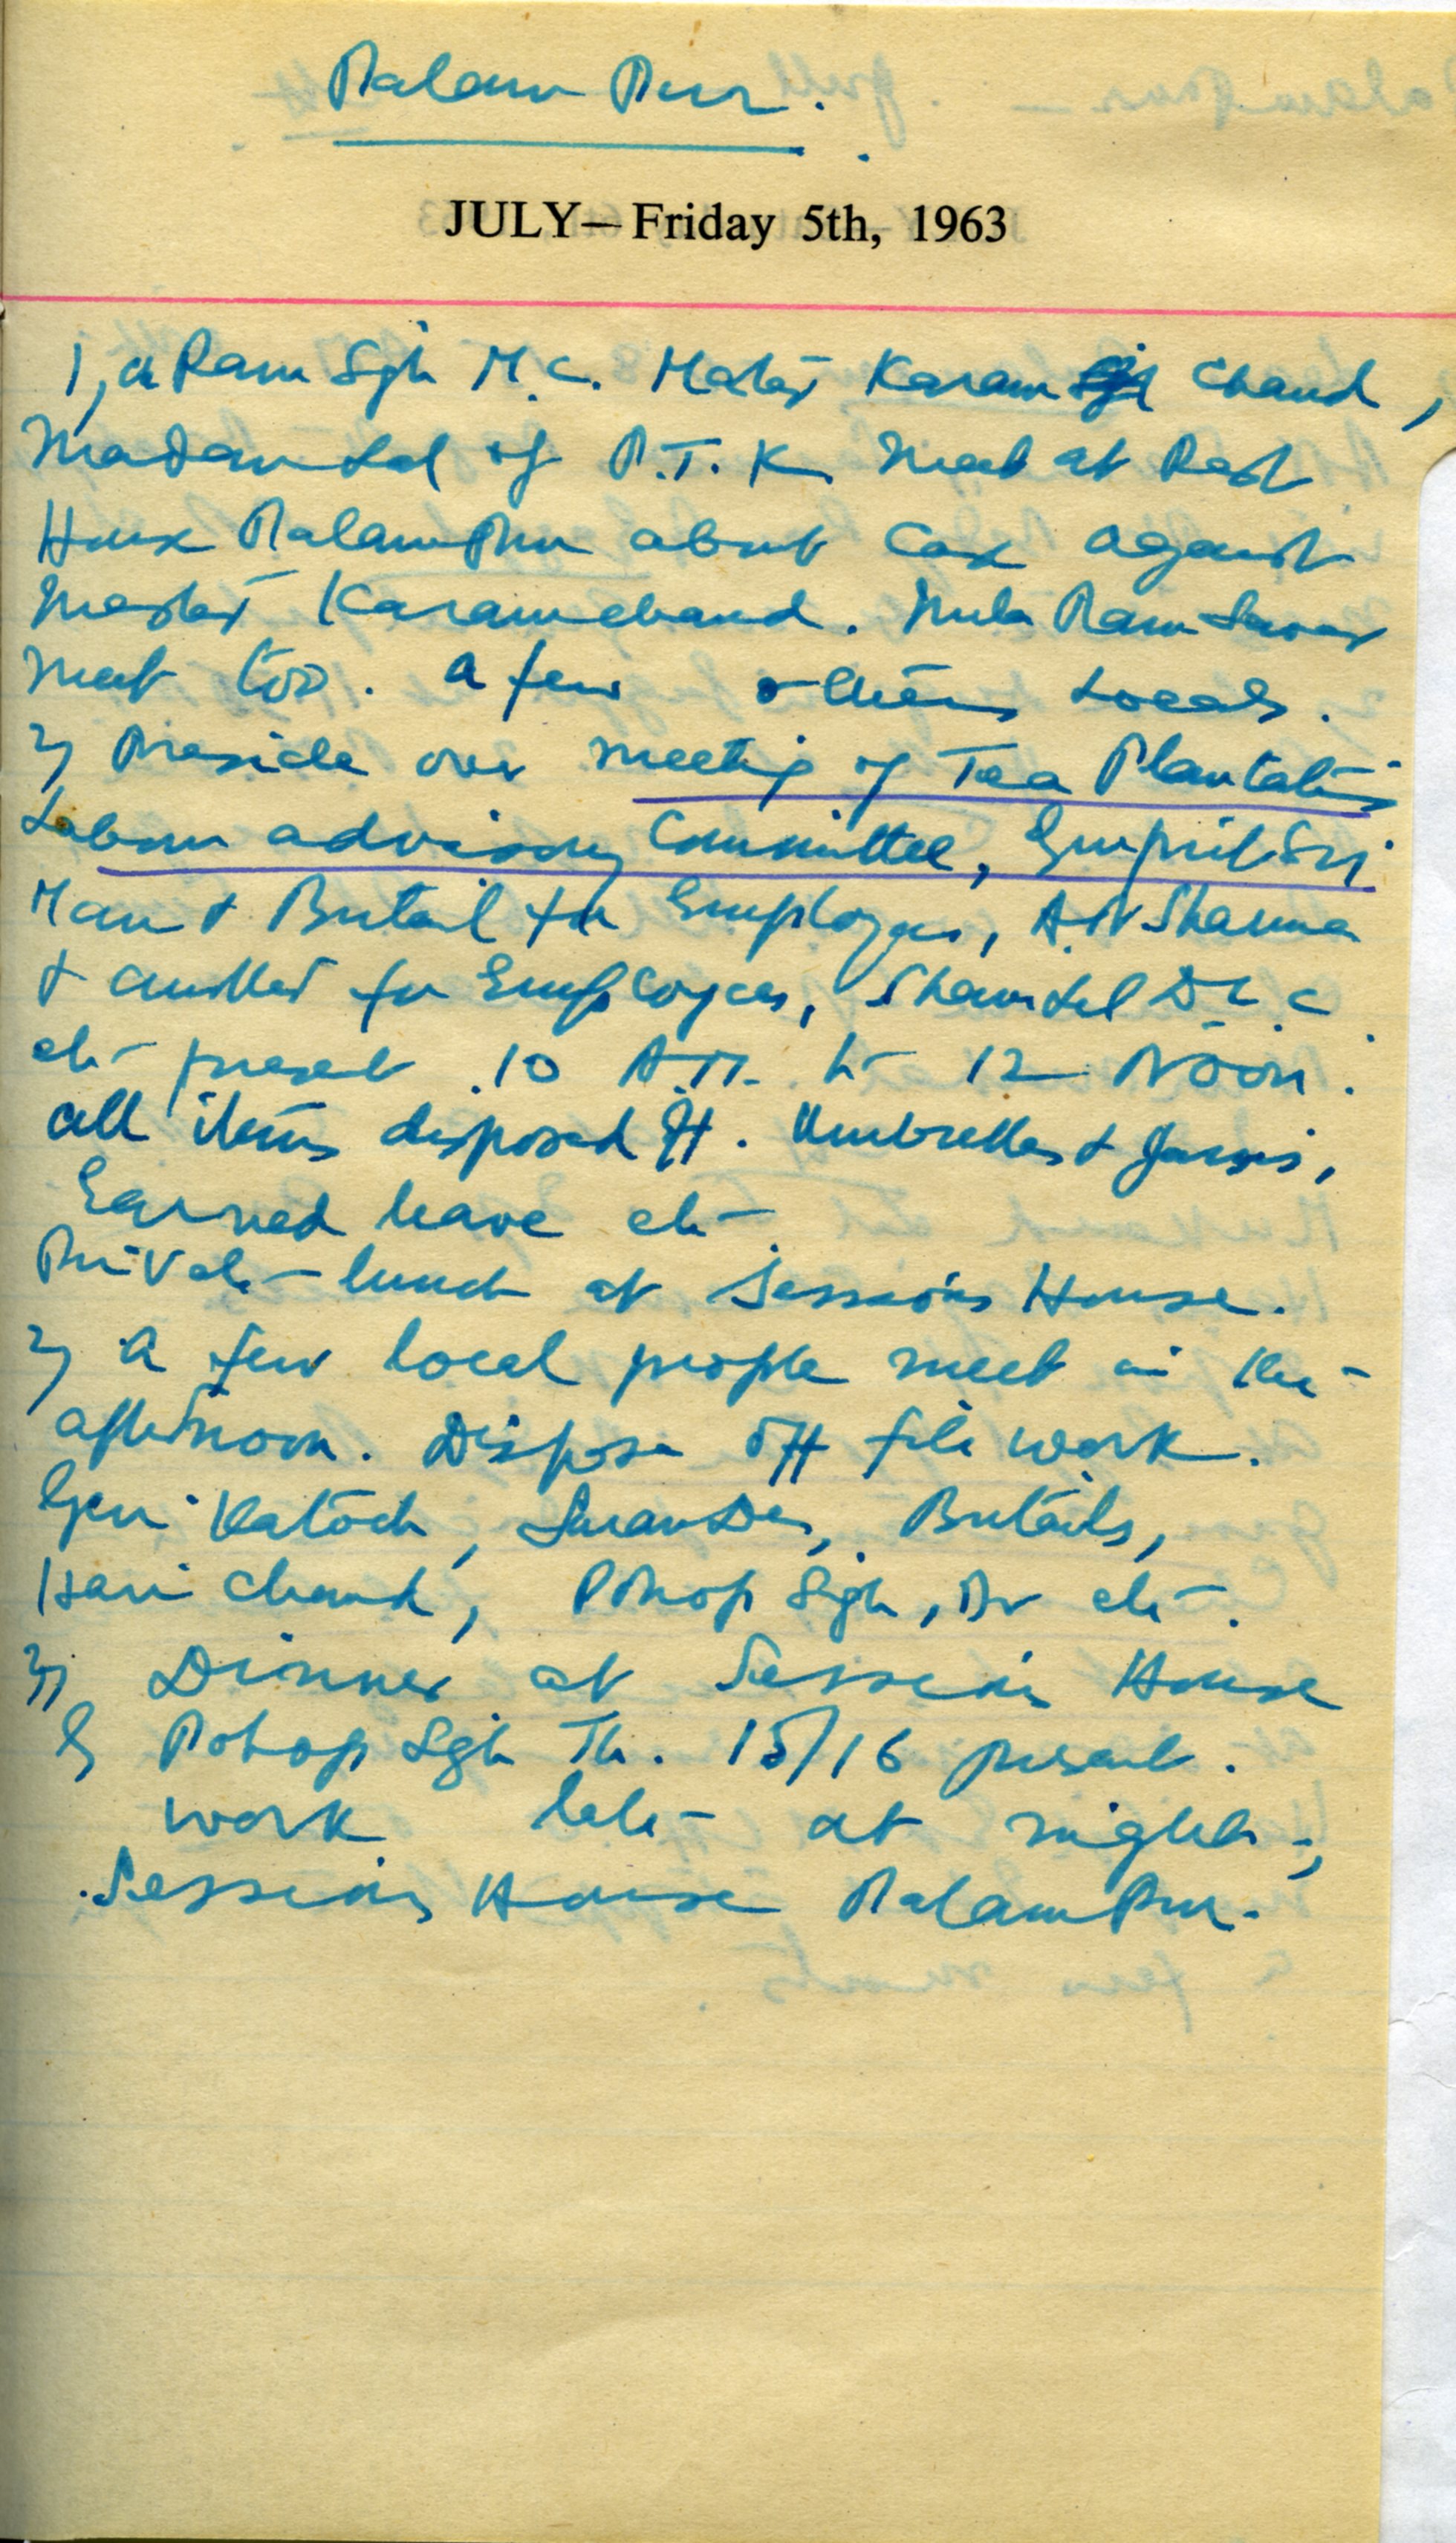 Palam Pur.
JULY—Friday 5th, 1963
1, a Ram Sgh M.C. Master Karam Chand,
Madan Lal of P.T.K. Meet at Rest
House Palampur about Case against
Master Karamchand. Mula Ram
Meet too. A few others Locals.
2) Preside over meeting of Tea Plantations
Labour advisory Committee,
Man & Butail for Employers, A.N Sharma
& another for Employees, Sham Lal D L C
etc present 10 A.M. to 12 Noon.
all items disposed off. Umbrellas &
Earned leave etc
Private lunch at Sessions House.
2) A few local people meet in the
afternoon. Dispose off file work.
Gen Katoch, Butails,
Hari Chand, Pohop Sgh, etc.
3) Dinner at Sessions House
by Pohop Sgh Th. 15/16 present.
work late at night,
Sessions House Palampur.